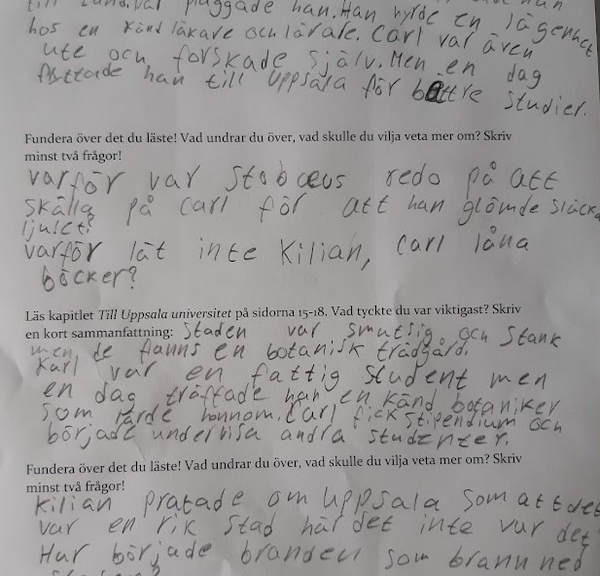 till Lund. Där pluggade han. Han hyrde en lägenhet
hos en känd läkare och lärare. Carl var även
ute och forskade själv. Men en dag
flyttade han till Uppsala för bättre studier.
Fundera över det du läste! Vad undrar du över, vad skulle du vilja veta mer om? Skriv
minst två frågor!
varför var Stobæus redo på att
Skälla på Carl för att han glömde släcka
ljuset?
varför lät inte Kilian, Carl låna
böcker?
Läs kapitlet Till Uppsala universitet på sidorna 15-18. Vad tyckte du var viktigast? Skriv
en kort sammanfattning: Staden var smutsig och Stank
men de fanns en botanisk trädgård.
Karl var en fattig Student men
en dag träffade han en känd botaniker
som lärde honnom. Carl fick stipendium och
började undervisa andra studenter.
Fundera över det du läste! Vad undrar du över, vad skulle du vilja veta mer om? Skriv
minst två frågor!
Kilian pratade om Uppsala som att det
var en rik stad när det inte var det
Hur började branden som brann ned